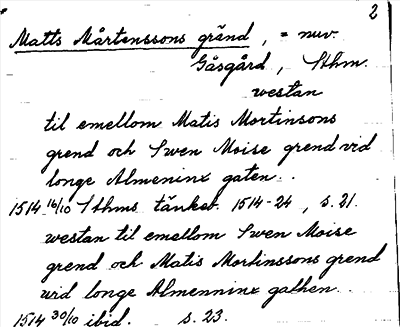 2
Matts Mårtenssons gränd, = nuv.
Gåsgård, Sthm.
westan
til emellom Matis Mortinsons
grend och Swen Moise grend vid
longe Almeninx gaten.
1514 16/10 Sthms tänkeb. 1514-24, s. 21.
westan til emellom Swen Moise
grend och Matis Mortinssons grend
wid longe Almenninx gathen.
1514 30/10 ibid. s. 23.